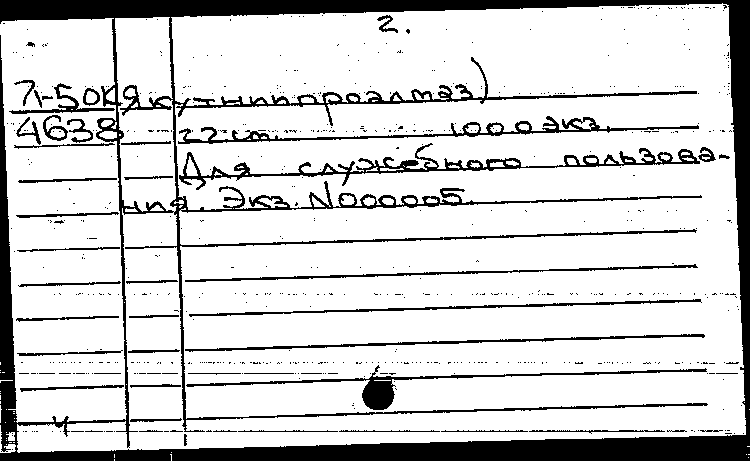 2.
71-50К Якутниипроалмаз)
4638 22 см. 1000 экз.
Для служебного пользова-
ния. Экз. N000005.
ч